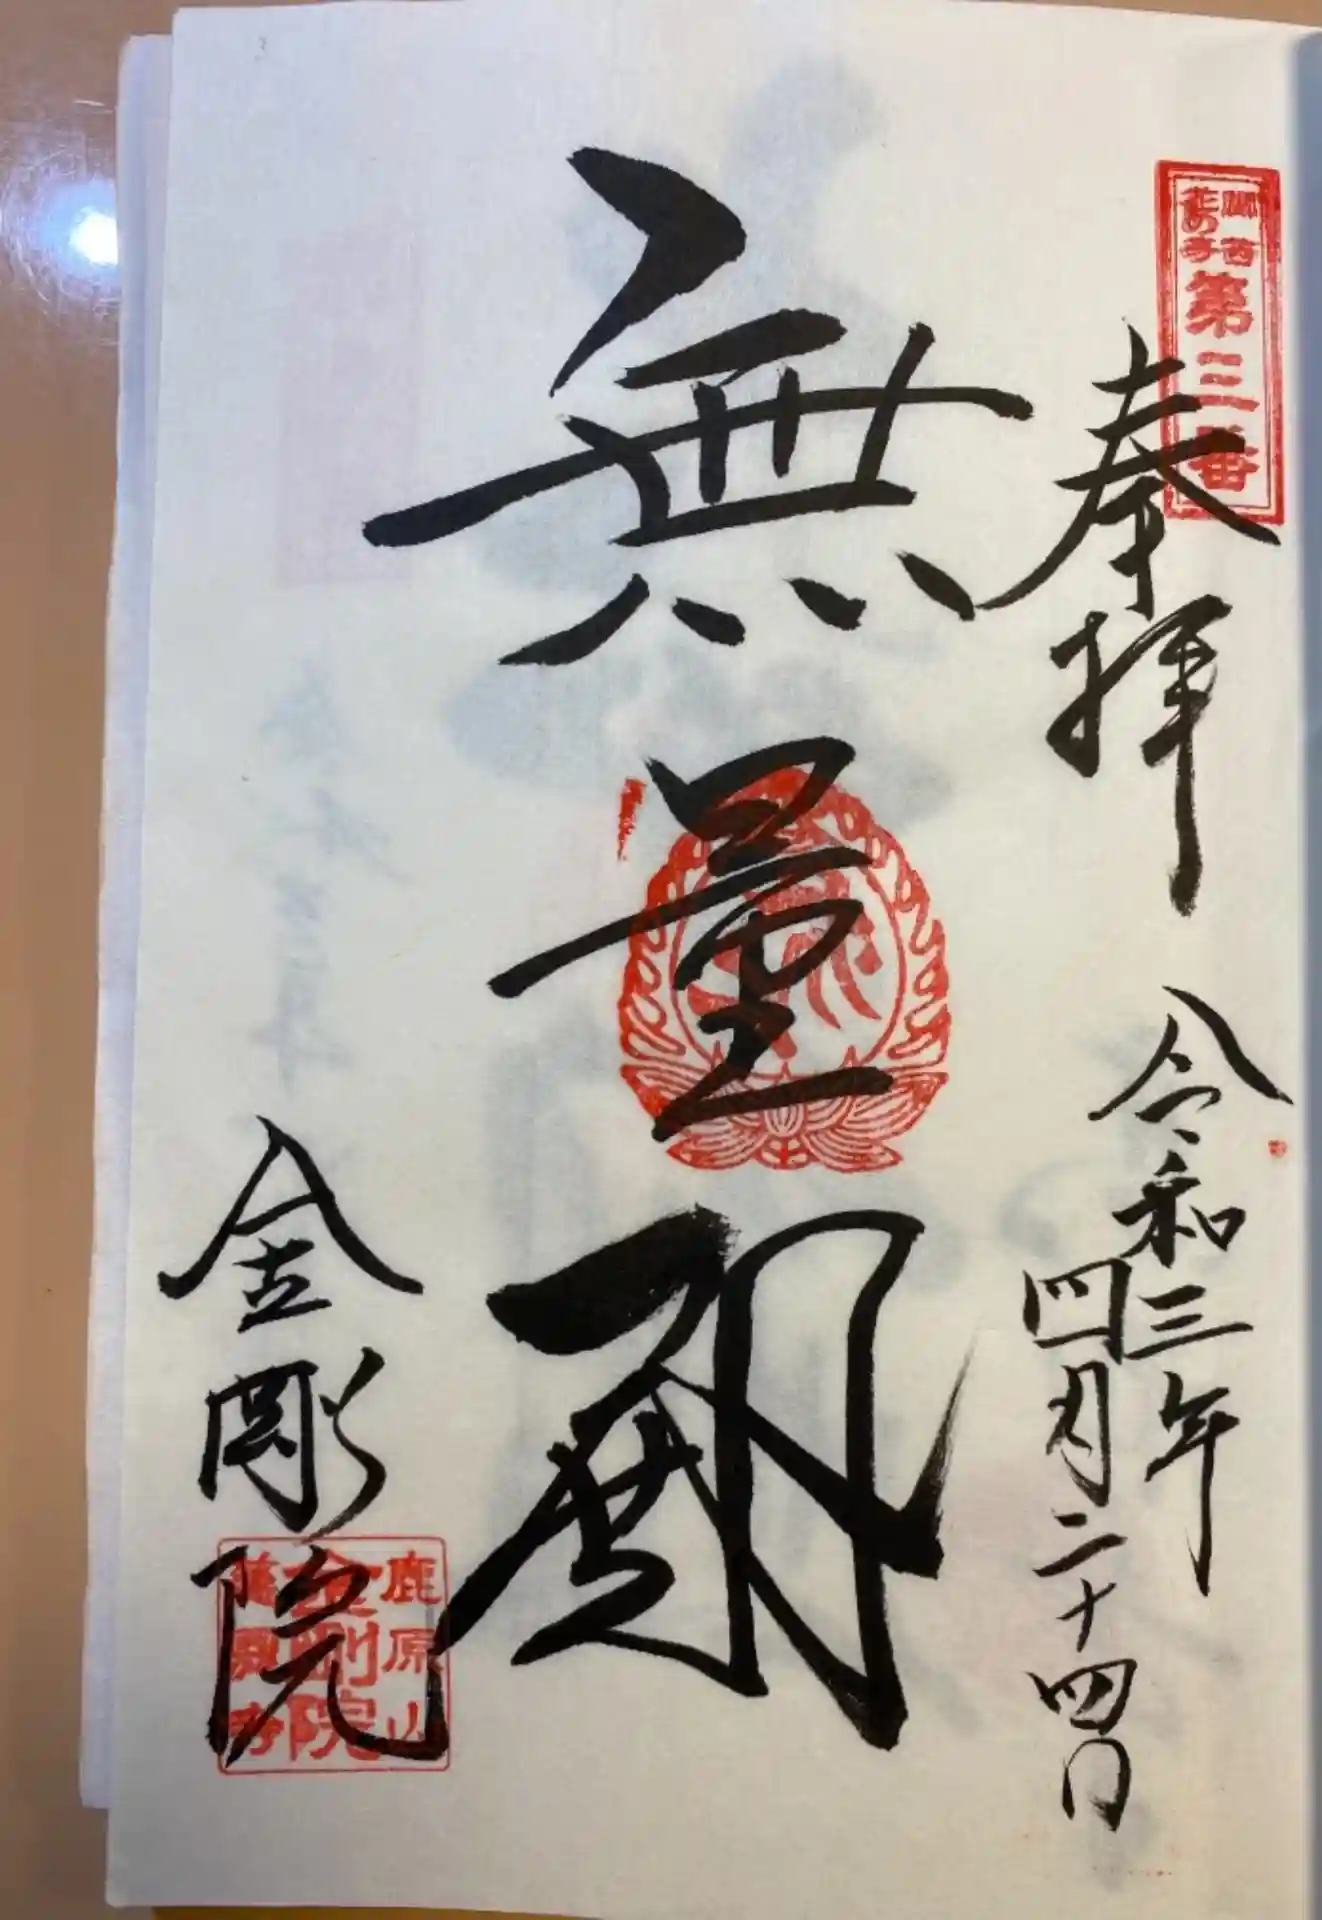 関西
花の寺
第三番
奉拝
令和三年
四月二十四日
無量殿
金剛院
鹿原山
金剛院
慈恩寺